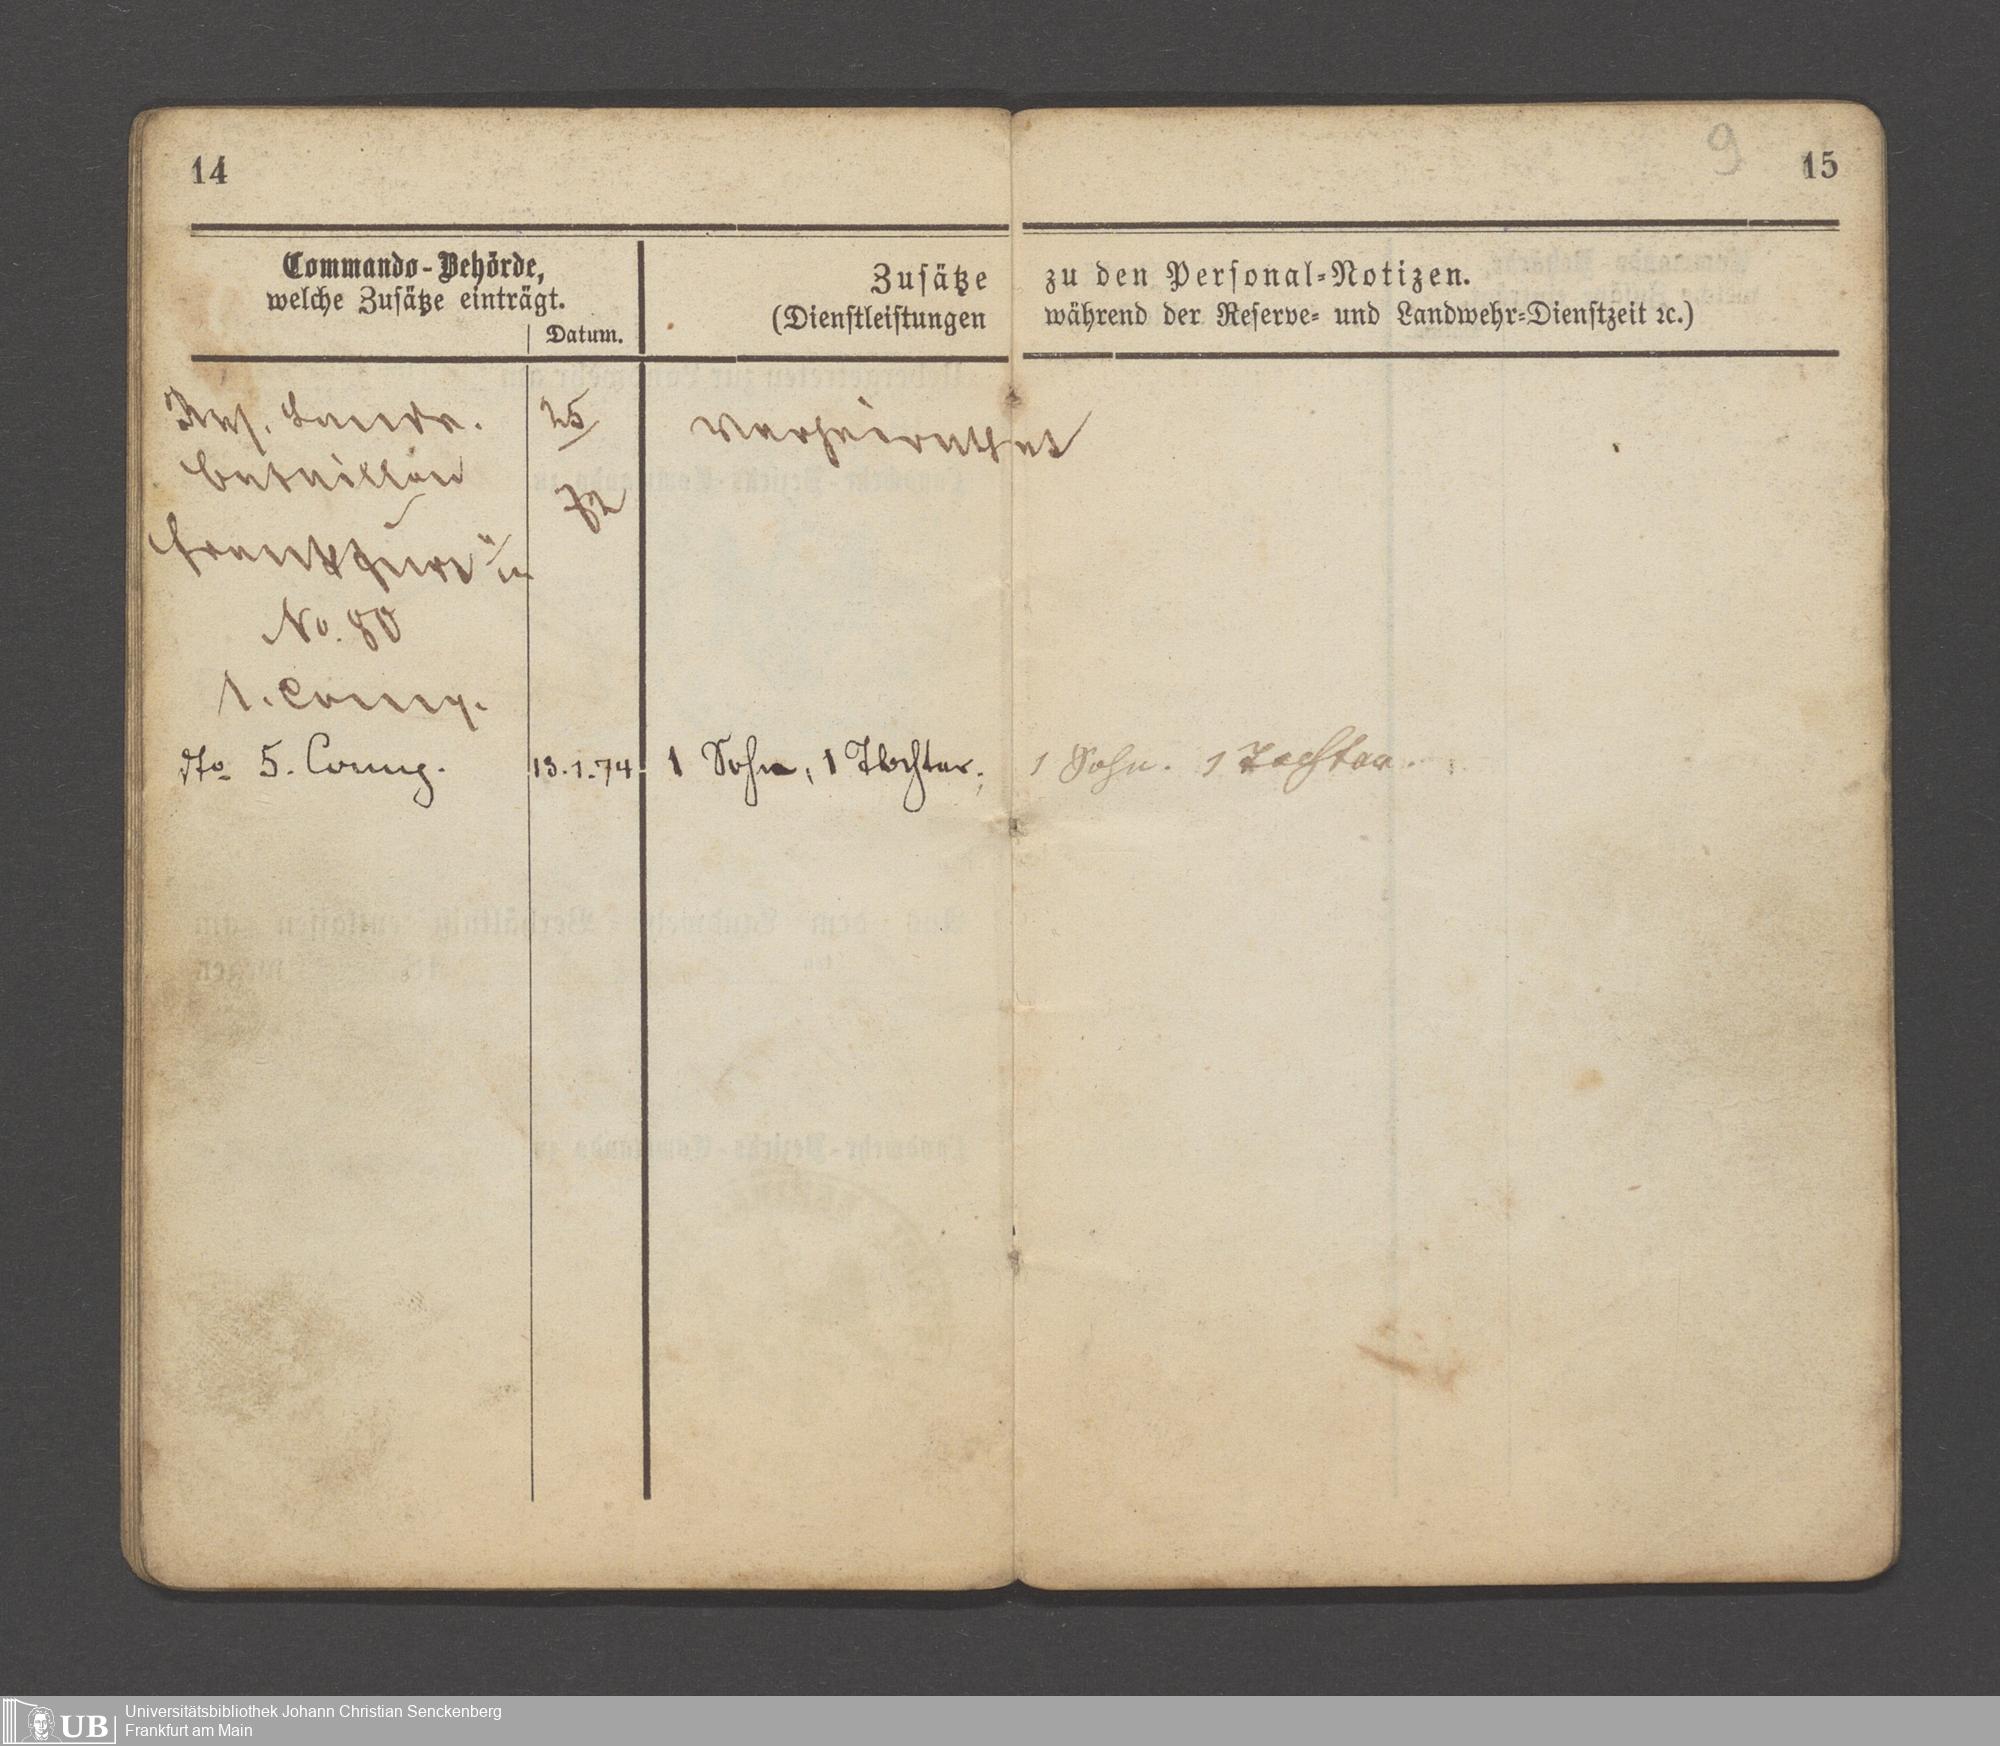 14
9
15
Commando-Behörde,
welche Zusätze einträgt.
Datum.
Zusätze
(Dienstleistungen
zu den Personal-Notizen.
während der Reserve- und Landwehr-Dienstzeit ꝛc.)
Res. Landw.
Bataillon
Frankfurt a/m
No. 80
1. Comp.
25/
72
verheirathet
dto 5. Comp.
13.1.74
1 Sohn, 1 Tochter.
1 Sohn. 1 Tochter.
UB
Universitätsbibliothek Johann Christian Senckenberg
Frankfurt am Main